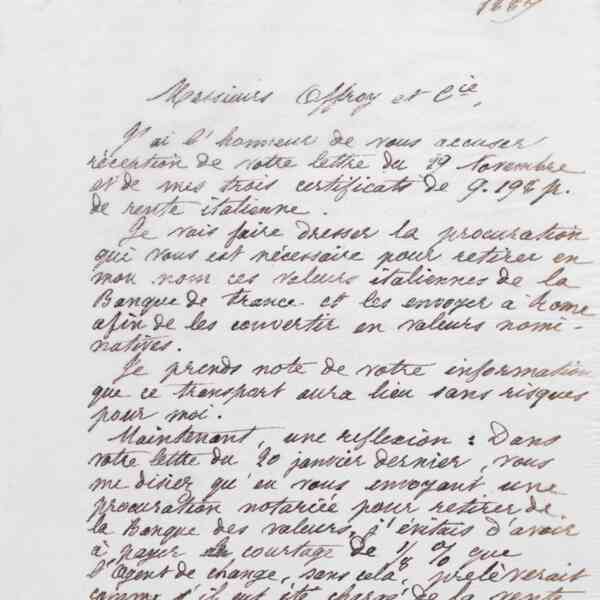 Messieurs Offroy et Cie,
J'ai l'honneur de vous accuser
réception de votre lettre du 29 Novembre
et de mes trois certificats de 9.198 f.
de rente italienne.
Je vais faire dresser la procuration
qui vous est nécessaire pour retirer en
mon nom ces valeurs italiennes de la
Banque de France et les envoyer à Rome
afin de les convertir en valeurs nomi-
natives.
Je prends note de votre information
que ce transport aura lieu sans risques
pour moi.
Maintenant, une réflexion : Dans
votre lettre du 20 janvier dernier, vous
me disiez qu'en vous envoyant une
procuration notariée pour retirer de
la Banque des valeurs, j'évitais d'avoir
à payer le courtage de 1/8 % que
l'Agent de change, sans cela, prélèverait
comme s'il eut été chargé de la vente